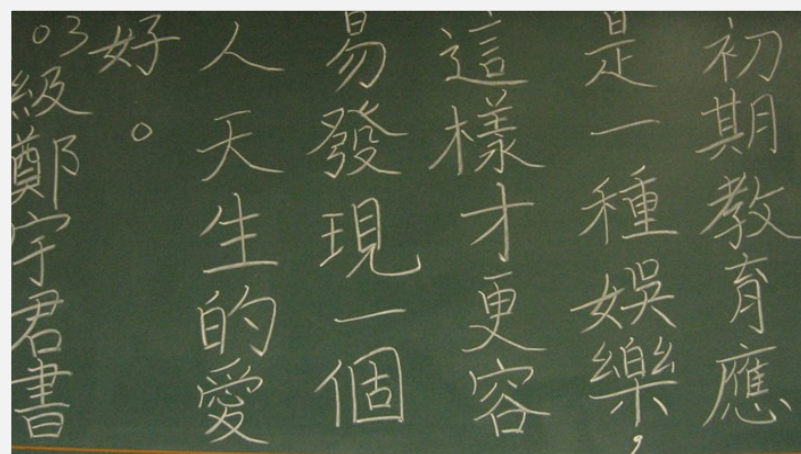 初期教育應
是一種娛樂，
這樣才更容
易發現一個
人天生的愛
好。
03級鄭宇君書